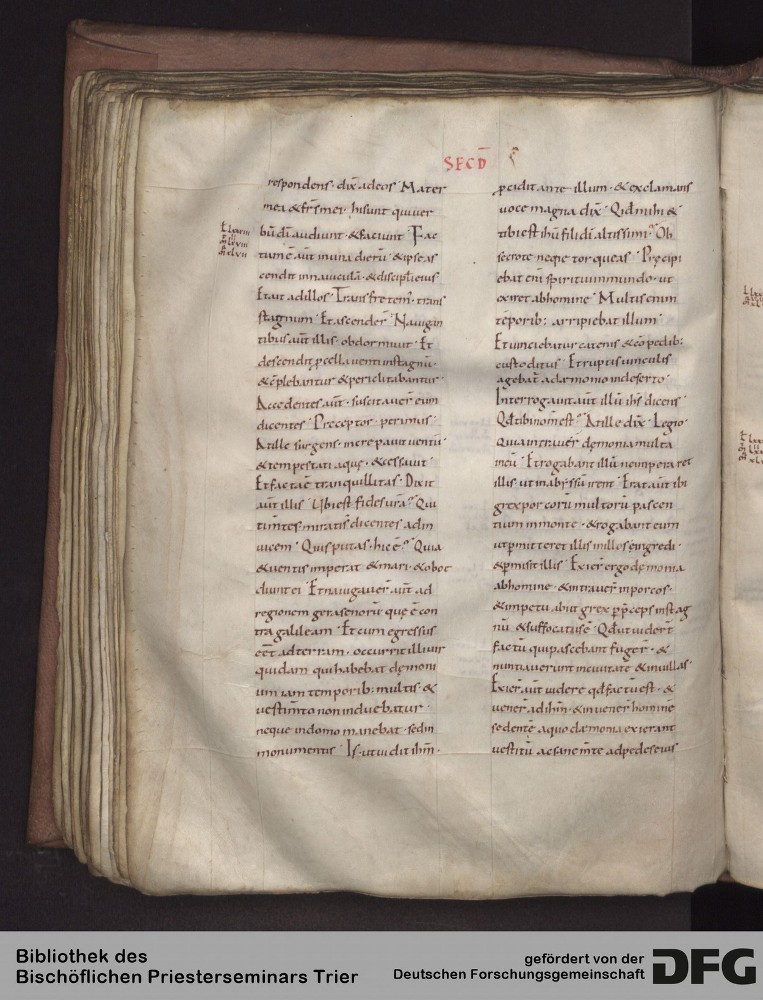 SECD̄
respondens· dix̄ adeos· Mater
mea & fr̄s mei· hi sunt qui uer
bū dī audiunt· & faciunt· Fac
tum ē aūt inuna dierū· & ipse as
cendit innauiculā· & discipli eius
Et ait adillos· Transfretem᷒· trans
stagnum· Et ascender̄· Nauigan
tibus aūt illis· obdormiuit· Et
descendit ꝓcella uenti instagnū·
& cōplebantur & periclitabantur·
Accedentes aūt· suscitauer̄ eum
dicentes· Preceptor· perimus·
At ille surgens· increpauit uentū
& tempestatē aquę· & cessauit·
Et facta ē tranquillitas· Dixit
aūt illis· Ubi est fides ur̄a? Qui
tim̄tes· mirati s̄ dicentes adin
uicem· Quis putas· hic ē? Quia
& uentis imperat & mari· & oboe
diunt ei· Et nauigauer̄ aūt ad
regionem gerasenorū que ē con
tra galileam· Et cum egressus
eēt adterram· occurrit illi uir
quidam qui habebat dęmoni
um iam temporib: multis· &
uestim̄to non induebatur·
neque indomo manebat· sed in
monumentis· Is· ut uidit ihm̄·
ꝓcidit ante illum· & exclamans
uoce magna dix̄· Qd̄ mihi &
tibi est ihū fili dī altissimi? Ob
secro te ne me torqueas· Precipi
ebat enī spiritui inmundo· ut
exiret abhomine· Multis enim
tēporib: arripiebat illum·
Et uinciebatur catenis & cōpedib:
custoditus· Et ruptis uinculis
agebat᷒ adæmonio indeserto·
Interrogauit aūt illū ihs̄ dicens
Qd̄ tibi nom̄ est? At ille dix̄· Legio·
Quia intrauer̄ dęmonia multa
ineū· Et rogabant illū ne imperaret
illis· ut inabyssū irent· Erat aūt ibi
grex porcorū multorū pascen
tium inmonte· & rogabant eum
ut ꝑmitteret illis inillos ingredi·
& ꝑmisit illis· Exier̄ ergo dęmonia
abhomine· & intrauer̄ inporcos·
& impetu abiit grex ꝑp̄ceps instag
nū· & suffocatus ē· Qd̄ ut uider̄t
factū qui pascebant fuger̄· &
nuntiauerunt inciuitatē & inuillas·
Exier̄ aūt uidere qd̄ factū est· &
uener̄ ad ihm̄· & inuener̄ hominē
sedentē aquo dæmonia exierant
uestitū ac sana m̄te adpedes eius
Bibliothek des
Bischöflichen Priesterseminars Trier
gefördert von der
Deutschen Forschungsgemeinschaft
DFG